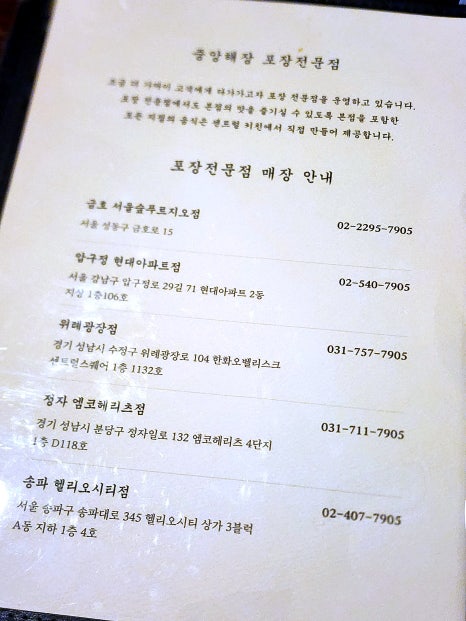 중앙해장 포장전문점
조금 더 가까이 고객에게 다가가고자 포장 전문점을 운영하고 있습니다.
포장 전문점에서도 본점의 맛을 즐기실 수 있도록 본점을 포함한
모든 지점의 음식은 센트럴 키친에서 직접 만들어 제공합니다.
포장전문점 매장 안내
금호 서울숲푸르지오점
02-2295-7905
서울 성동구 금호로 15
압구정 현대아파트점
02-540-7905
서울 강남구 압구정로 29길 71 현대아파트 2동
지실 1층106호
위례광장점
031-757-7905
경기 성남시 수정구 위례광장로 104 한화오벨리스크
센트럴스퀘어 1층 1132호
정자 엠코헤리츠점
031-711-7905
경기 성남시 분당구 정자일로 132 엠코헤리츠 4단지
1층 D118호
송파 헬리오시티점
02-407-7905
서울 송파구 송파대로 345 헬리오시티 상가 3블럭
A동 지하 1층 4호